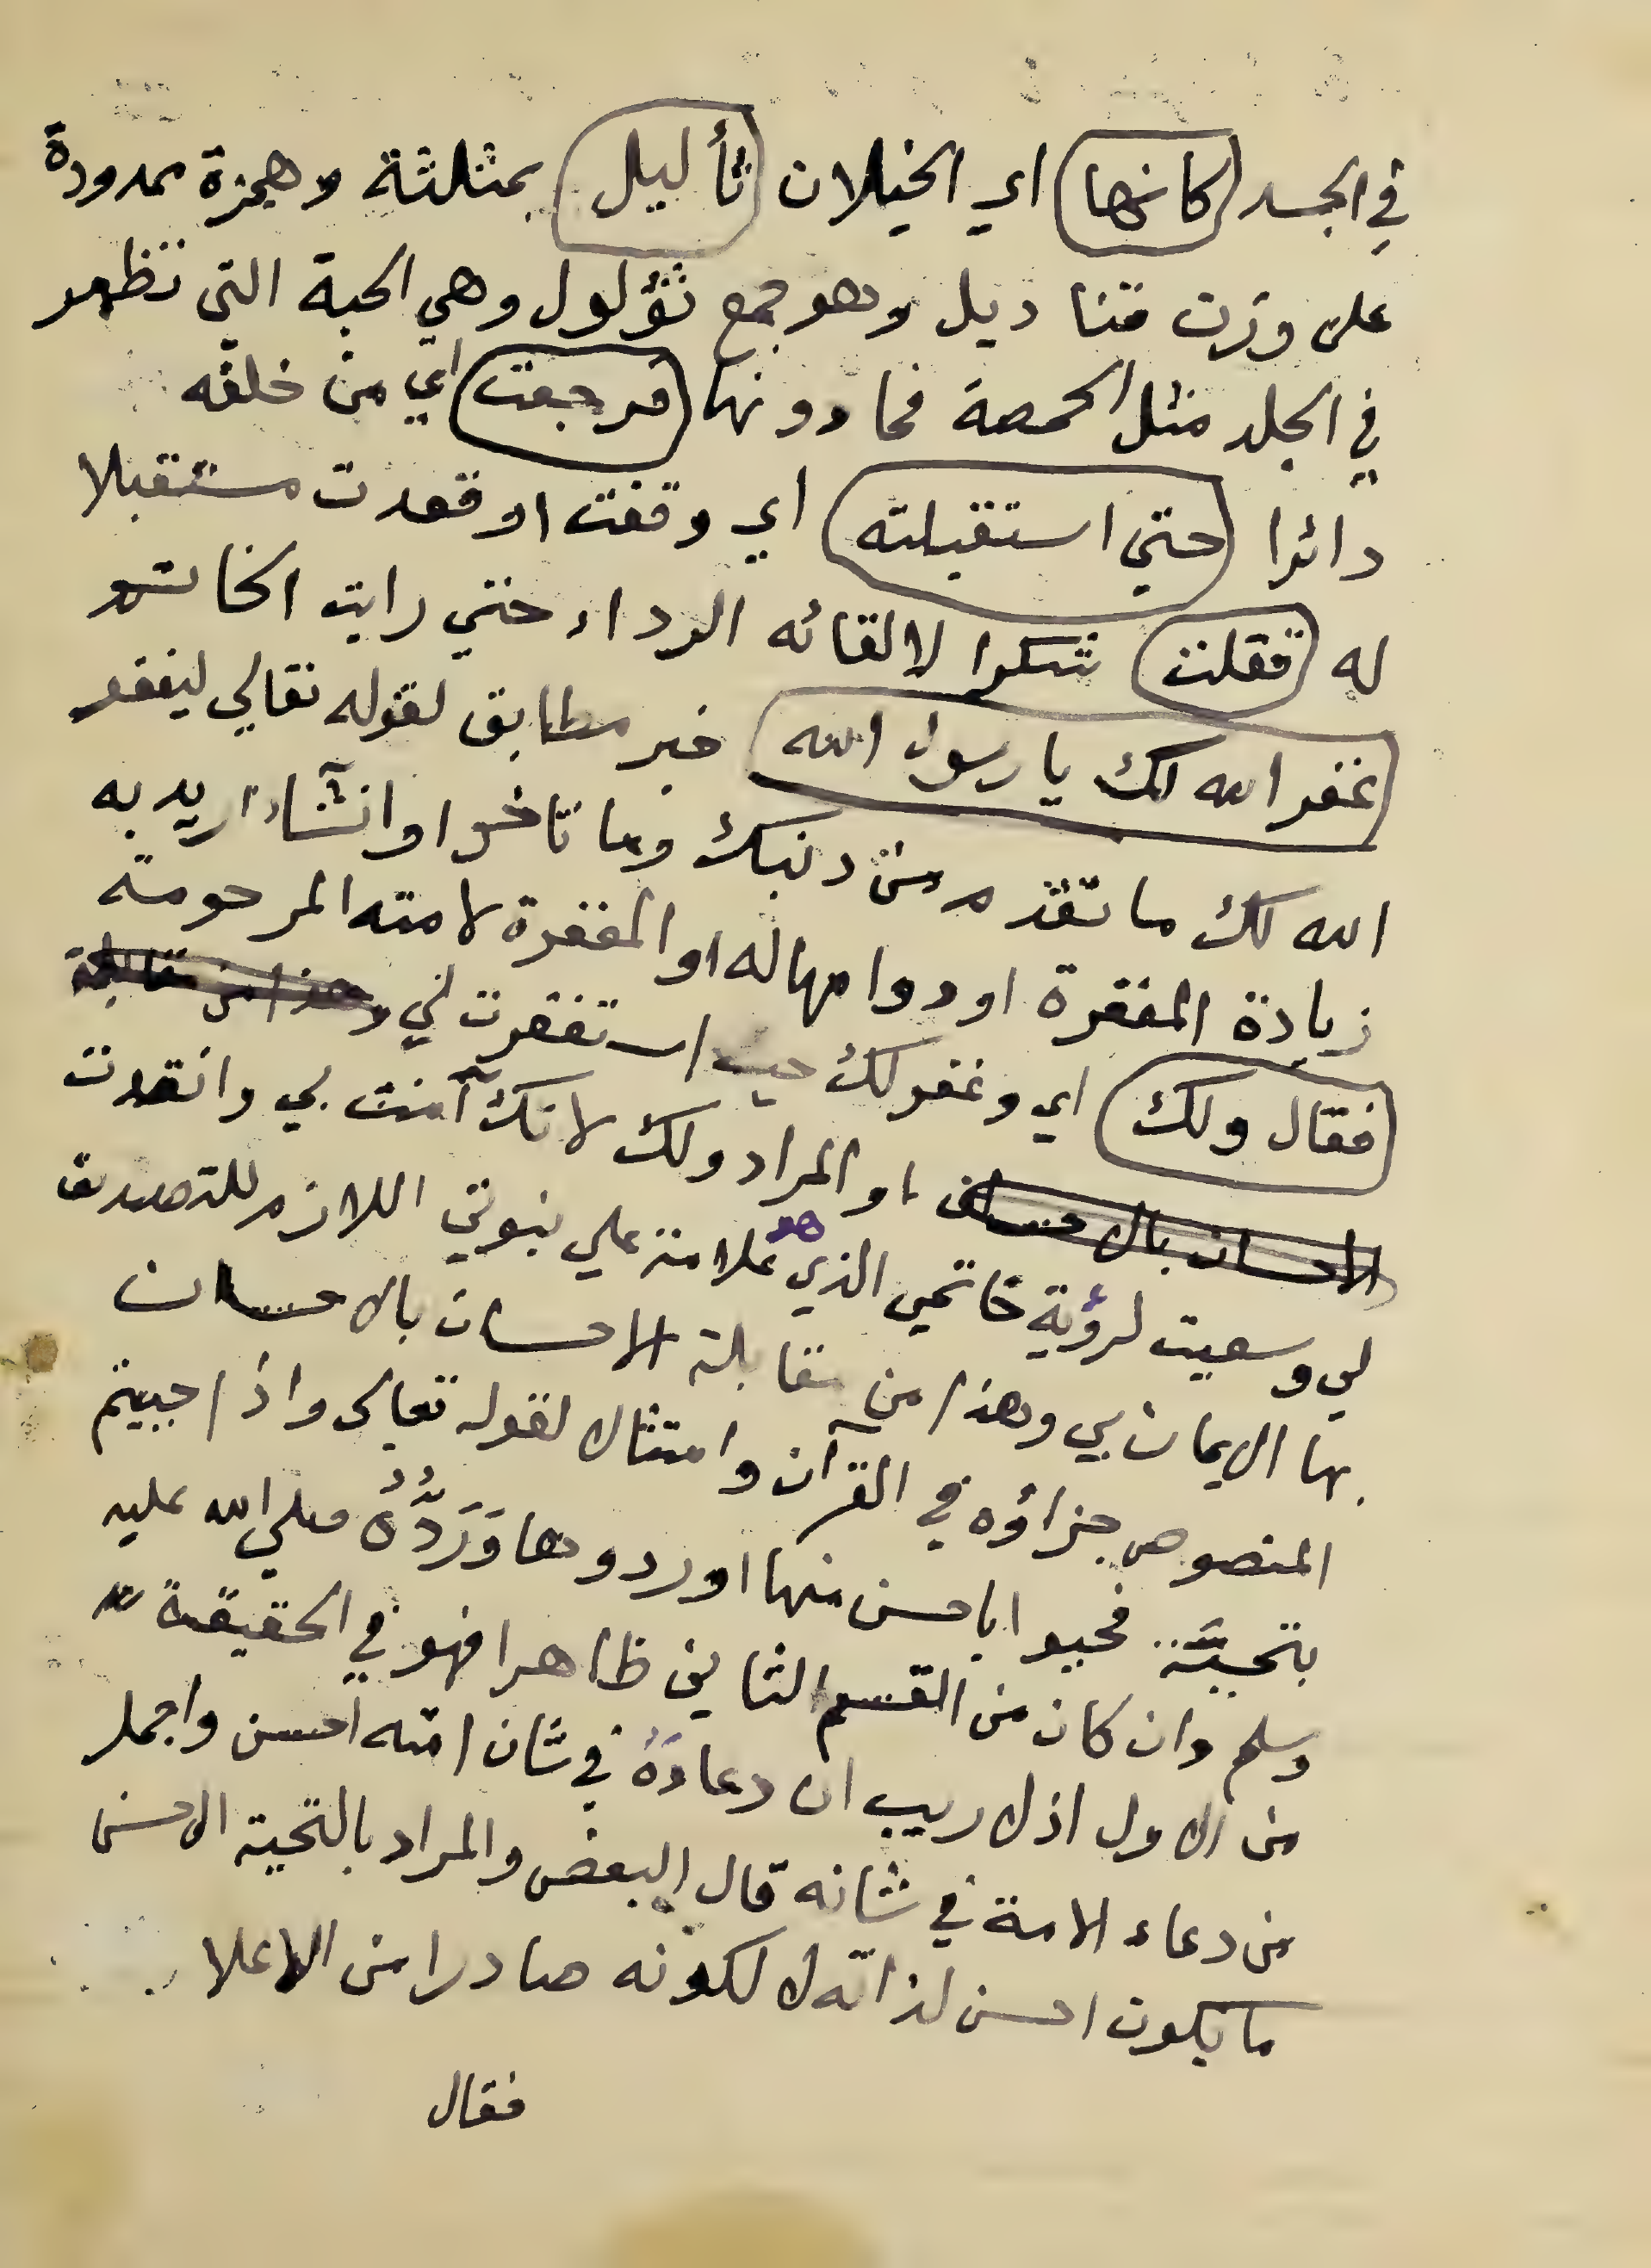 في الجسد كانها اي الخيلان ثأليل بمثلثة وهمزة ممدودة
على وزن قناديل وهو جمع ثؤلول وهي الحبة التي تظهر
في الجلد مثل الحمصة فما دونها فرجعت اي من خلفه
دائرا حتي استقبلته اي وقفت او قعدت مستقبلا
له فقلت شكرا لالقائه الرداء حتي رايت الخاتم
غفر الله لك يا رسول الله خبر مطابق لقوله تعالي ليغفر
الله لك ما تقدم من ذنبك وما تاخر او انشاء اريد به
زيادة المغفرة او دوامها له او المغفرة لامته المرحومة
فقال ولك اي وغفر لك حيث استغفرت لي وهذا من مقابلة
الاحسان بالاحسان او المراد ولك لانك آمنت بي وانقدت
لي وسعيت لرؤية خاتمي الذي هو علامة علي نبوتي اللازم للتصديق
بها الايمان بي وهذا من مقابلة الاحسان بالاحسان
المنصوص جزاؤه في القرآن وامتثال لقوله تعالى واذا حييتم
بتحيّة فحيوا باحسن منها او ردوها وَرَدُّهُ صلي الله عليه
وسلم وان كان من القسم الثاني ظاهرا فهو في الحقيقة
من الاول اذ لا ريب ان دعاءَهُ في شان امته احسن واجمل
من دعاء الامة في شانه قال البعض والمراد بالتحية الاحسن
ما يكون احسن لذاته لا لكونه صادرا من الاعلا
فقال